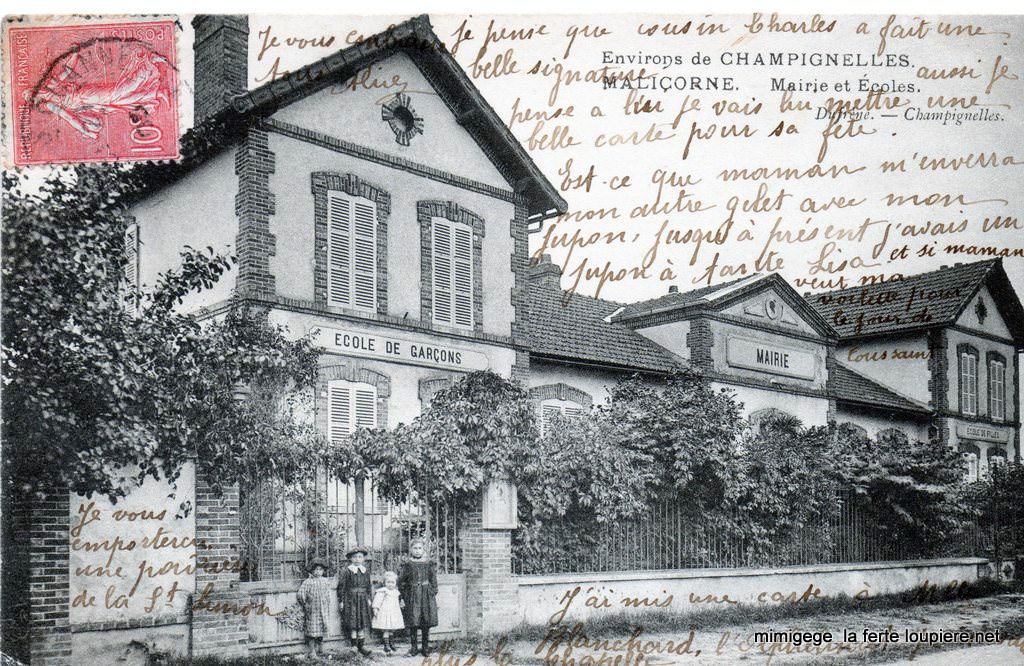 Je vous embrasse
tous Alice
je pense que cousin Charles a fait une
belle signature aussi je
pense à lui je vais lui mettre une
belle carte pour sa fête.
Environs de CHAMPIGNELLES.
MALICORNE. Mairie et Écoles.
Dufrène. — Champignelles.
Est-ce que maman m'enverra
mon autre gilet avec mon
jupon, jusqu'à présent j'avais un
jupon à tante Lisa et si maman
veut ma
voilette pour
le jour de
toussaint
POSTES
REPUBLIQUE FRANÇAISE
10c
ECOLE DE GARÇONS
MAIRIE
ECOLE DE FILLES
Je vous
emporterai
une
de la St Simon
J'ai mis une carte à
Blanchard,
plus la Chapelle
mimigege la ferte loupiere.net